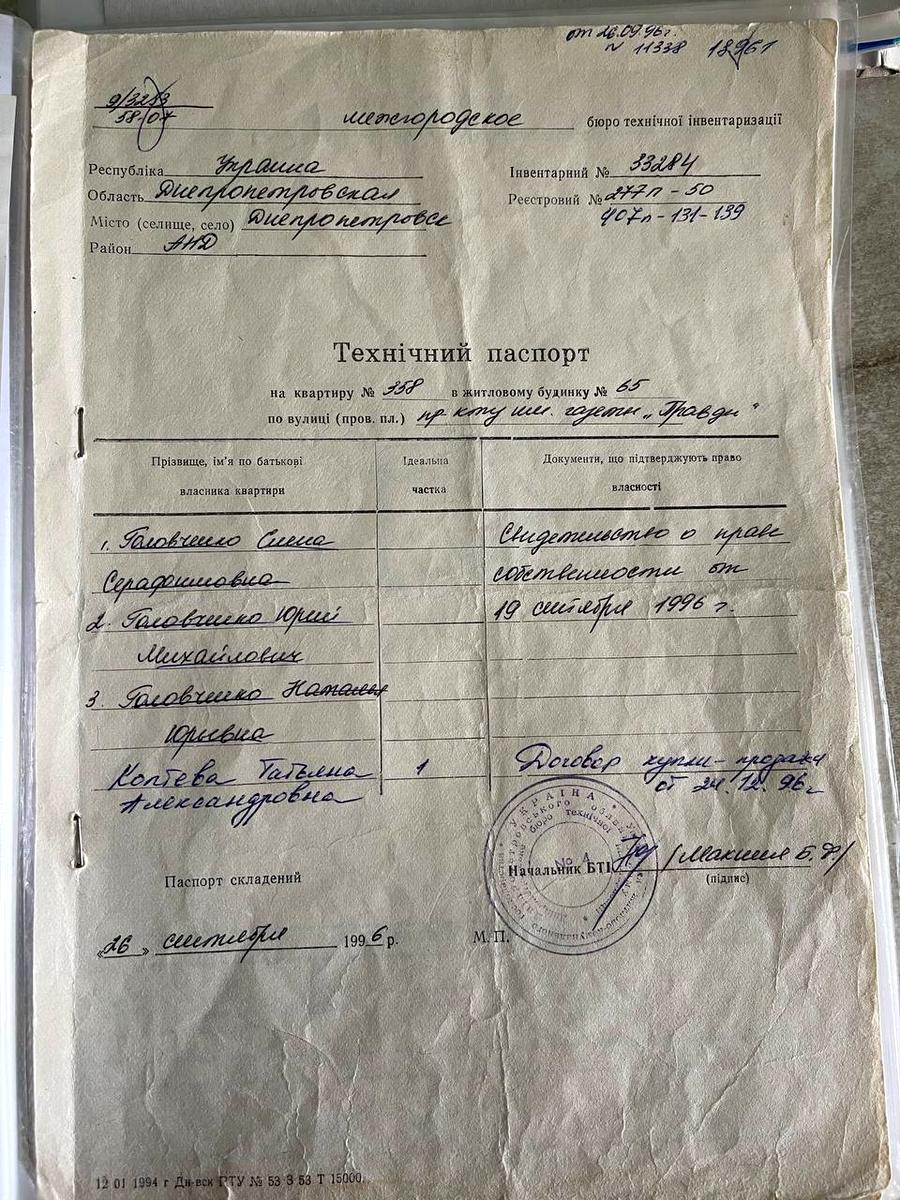 от 26.09.96г.
№ 11338 18961
9/3283
58/07
межгородское бюро технічної інвентаризації
Республіка Украина
Інвентарний № 33284
Область Днепропетровская
Реєстровий № 277п - 50
Місто (селище, село) Днепропетровск
407п-131-139
Район АНД
Технічний паспорт
на квартиру № 358 в житловому будинку № 65
по вулиці (пров. пл.) пр-кту им. газеты „Правды"
Прізвище, ім'я по батькові
власника квартири
Ідеальна
частка
Документи, що підтверджують право
власності
1. Головченко Елена
Свидетельство о праве
Серафимовна
собственности от
2. Головченко Юрий
19 сентября 1996 г.
Михайлович
3. Головченко Наталья
Юрьевна
Коптева Татьяна 1 Договор купли-продажи
Александровна
от 24.12.96г
УКРАЇНА
бюро технічної
№ 1
Начальник БТІ
(підпис)
Паспорт складений
„26" сентября 1996 р.
М. П.
12 01 1994 г Дн-вск РТУ № 53 З 53 Т 15000.